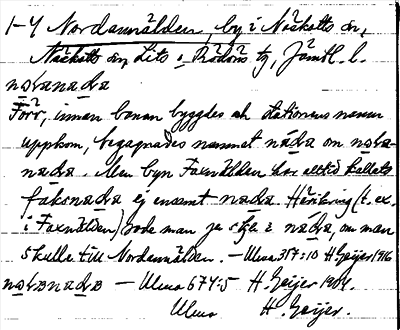 1-4 Nordannälden, by i Näskotts sn,
Näskotts sn, Lits o. Rödöns tg, Jämtl. l.
nɷlanada
Förr, innan banan byggdes och stationens namn
uppkom, begagnades namnet náda om nɷla-
nada. Men byn Faxnälden har alltid kallats
faksnada ej ensamt nada. Häromkring (t. ex.
i Faxnälden) sade man ja ska i náda, om man
skulle till Nordannälden. – Ulma 317:10 H Geijer 1916
– Ulma 677:5 H. Geijer 1904.
Ulma H. Geijer.